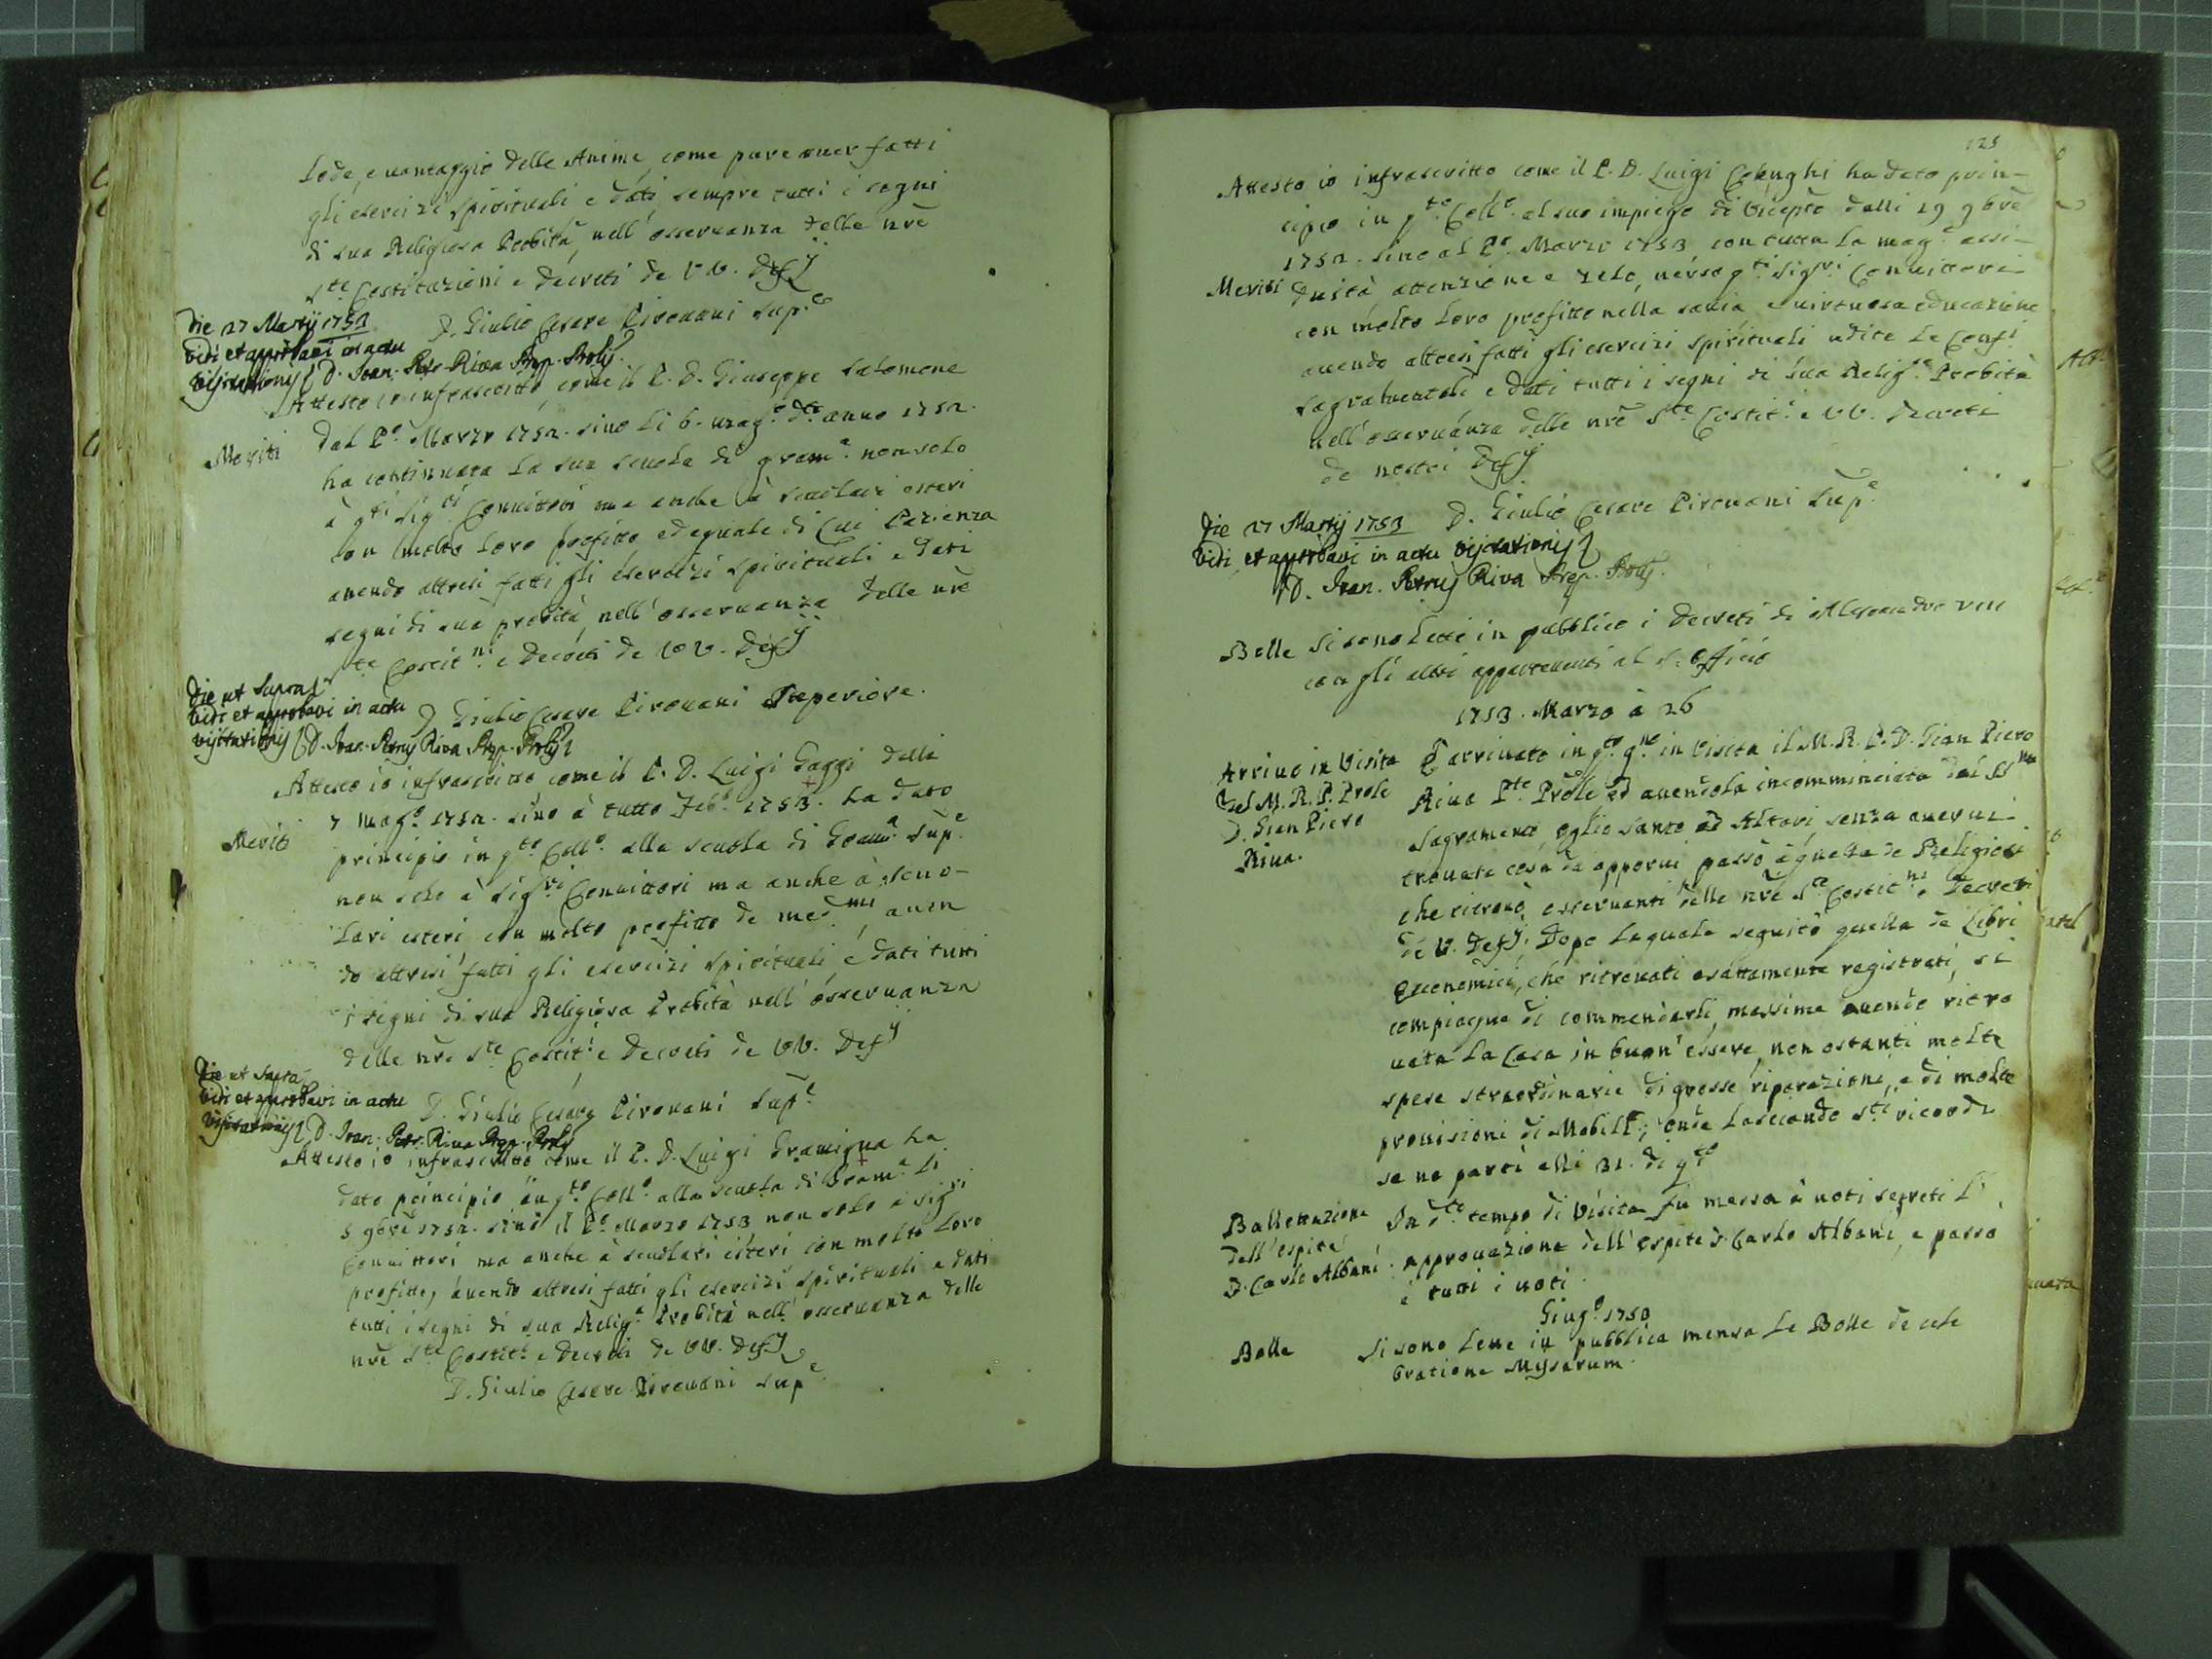 Lode, e vantaggio delle Anime, come pure aver fatti
gli esercizi spirituali e dati sempre tutti i segni
di sua Religiosa Probità, nell'osservanza delle nre
Ste Costituzioni e decreti de VV. Defj
D. Giulio Cesare Pirovani Sup.e
Die 27 Martij 1753
vidi et approbavi in actu
visitationis D. Ioan. Petr. Riva Prep. Prolis
Attesto io infrascritto, come il P. D. Giuseppe Salomone
Meriti
dal P.o Marzo 1752. sino li 6. mag.o dto anno 1752.
ha continuata la sua scuola di gram.a non solo
à qti Sig.ri Convittori ma anche à scuolari esteri
con molto loro profitto ed eguale di lui Pazienza
avendo altresi fatti gli esercizi spirituali e dati
segni di sua probità, nell'osservanza delle nre
Ste Costit.ni e decreti de VV. Defj
D. Giulio Cesare Pirovani Superiore.
Die ut supra
vidi et approbavi in actu
visitationis D. Ioan. Petrus Riva Prep. Prolis
Attesto io infrascritto come il P. D. Luigi Gaggi delli
Meriti
7 Mag.o 1752. sino à tutto Feb.o 1753. ha dato
principio in q.to Coll.o alla scuola di Gram.a Sup.e
non solo à Sig.ri Convittori ma anche à scuo-
lari esteri con molto profitto de med.mi aven
do altresi fatti gli esercizi spirituali, e dati tutti
i segni di sua Religiosa Probità nell'osservanza
delle nre Ste Costit.i e decreti de VV. Defj
D. Giulio Cesare Pirovani Sup.e
Die ut supra
vidi et approbavi in actu
visitationis D. Ioan. Petr. Riva Prep. Prolis
Attesto io infrascritto come il P. D. Luigi Gramigna ha
dato principio in q.to Coll.o alla scuola di Gram.a li
5 9bre 1752. sino il P.o Marzo 1753 non solo à Sig.ri
Convittori ma anche à scuolari esteri con molto loro
profitto, avendo altresi fatti gli esercizi spirituali e dati
tutti i segni di sua Relig.a Probità nell'osservanza delle
nre Ste Costit.i e decreti de VV. Defj
D. Giulio Cesare Pirovani Sup.e
125
Attesto io infrascritto come il P. D. Luigi ha dato prin-
cipio in q.to Coll.o al suo impiego di dalli 19 9bre
1752. sino al P.o Marzo 1753 con tutta la mag.e assi-
Meriti
duità attenzione e zelo, verso q.ti Sig.ri Convittori
con molto loro profitto nella savia e virtuosa educazione
avendo altresi fatti gli esercizi spirituali udite le Conf.i
sagramentali e dati tutti i segni di sua Relig.sa Probità
nell'osservanza delle nre Ste Costit.i e VV. decreti
de nostri Defj
D. Giulio Cesare Pirovani Sup.e
Die 27 Martij 1753
vidi, et approbavi in actu visitationis
D. Ioan. Petrus Riva Prep. Prolis.
Bolle
Si sono letti in pubblico i decreti di Alessandro VIII
con gli altri appartenenti al S. Officio
1753. Marzo à 26
Arrivo in Visita
del M. R. P. Prole
D. Gian Piero
Riva.
È arrivato in q.to g.no in Visita il M. R. P. D. Gian Piero
Riva P.te Prole ed avendola incomminciata dal SS.mo
Sagramento Oglio Santo ed Altari senza avervi
trovata cosa da opporvi passò à quella de Religiosi
che ritrovò osservanti delle nre Ste Costit.ni e Decreti
de V. Defj. Dopo la quale seguitò quella de Libri
Economici, che ritrovati esattamente registrati, si
compiacque di commendarli, massime avendo ritro
vata la Casa in buon'essere, non ostanti molte
spese straordinarie di grosse riparazioni, e di molte
provisioni di Mobili; onde lasciando s.ti ricordi
se ne partì alli 31. di q.to
Ballottazione
dell'ospite
D. Carlo Albani.
In d.to tempo di Visita fu messa à voti segreti l'
approvazione dell'ospite D. Carlo Albani, e passò
à tutti i voti.
Giug.o 1753
Bolle
Si sono lette in pubblica mensa le Bolle de cele
bratione Missarum.